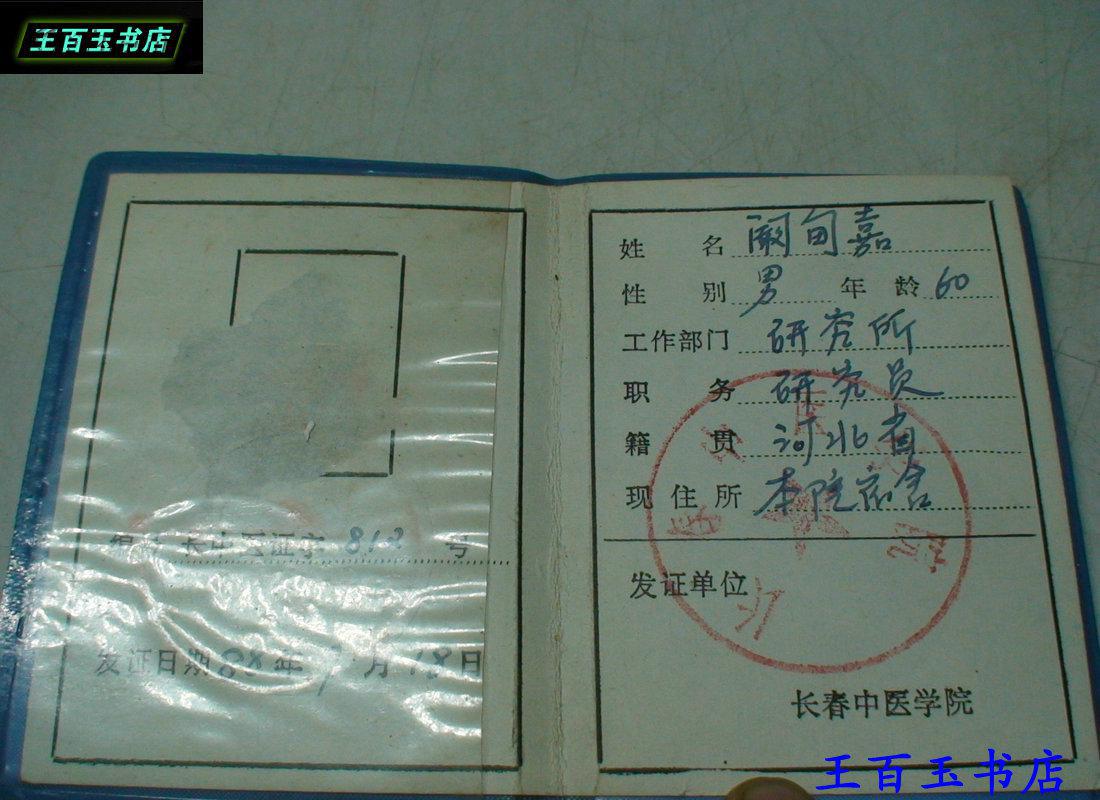 王百玉书店
编号 长中医证字 812 号
发证日期 88 年 月 18 日
姓 名 阚甸嘉
性 别 男 年 龄 60
工作部门 研究所
职 务 研究员
籍 贯 河北省
现 住 所 本院宿舍
发证单位
长春中医学院
王百玉书店